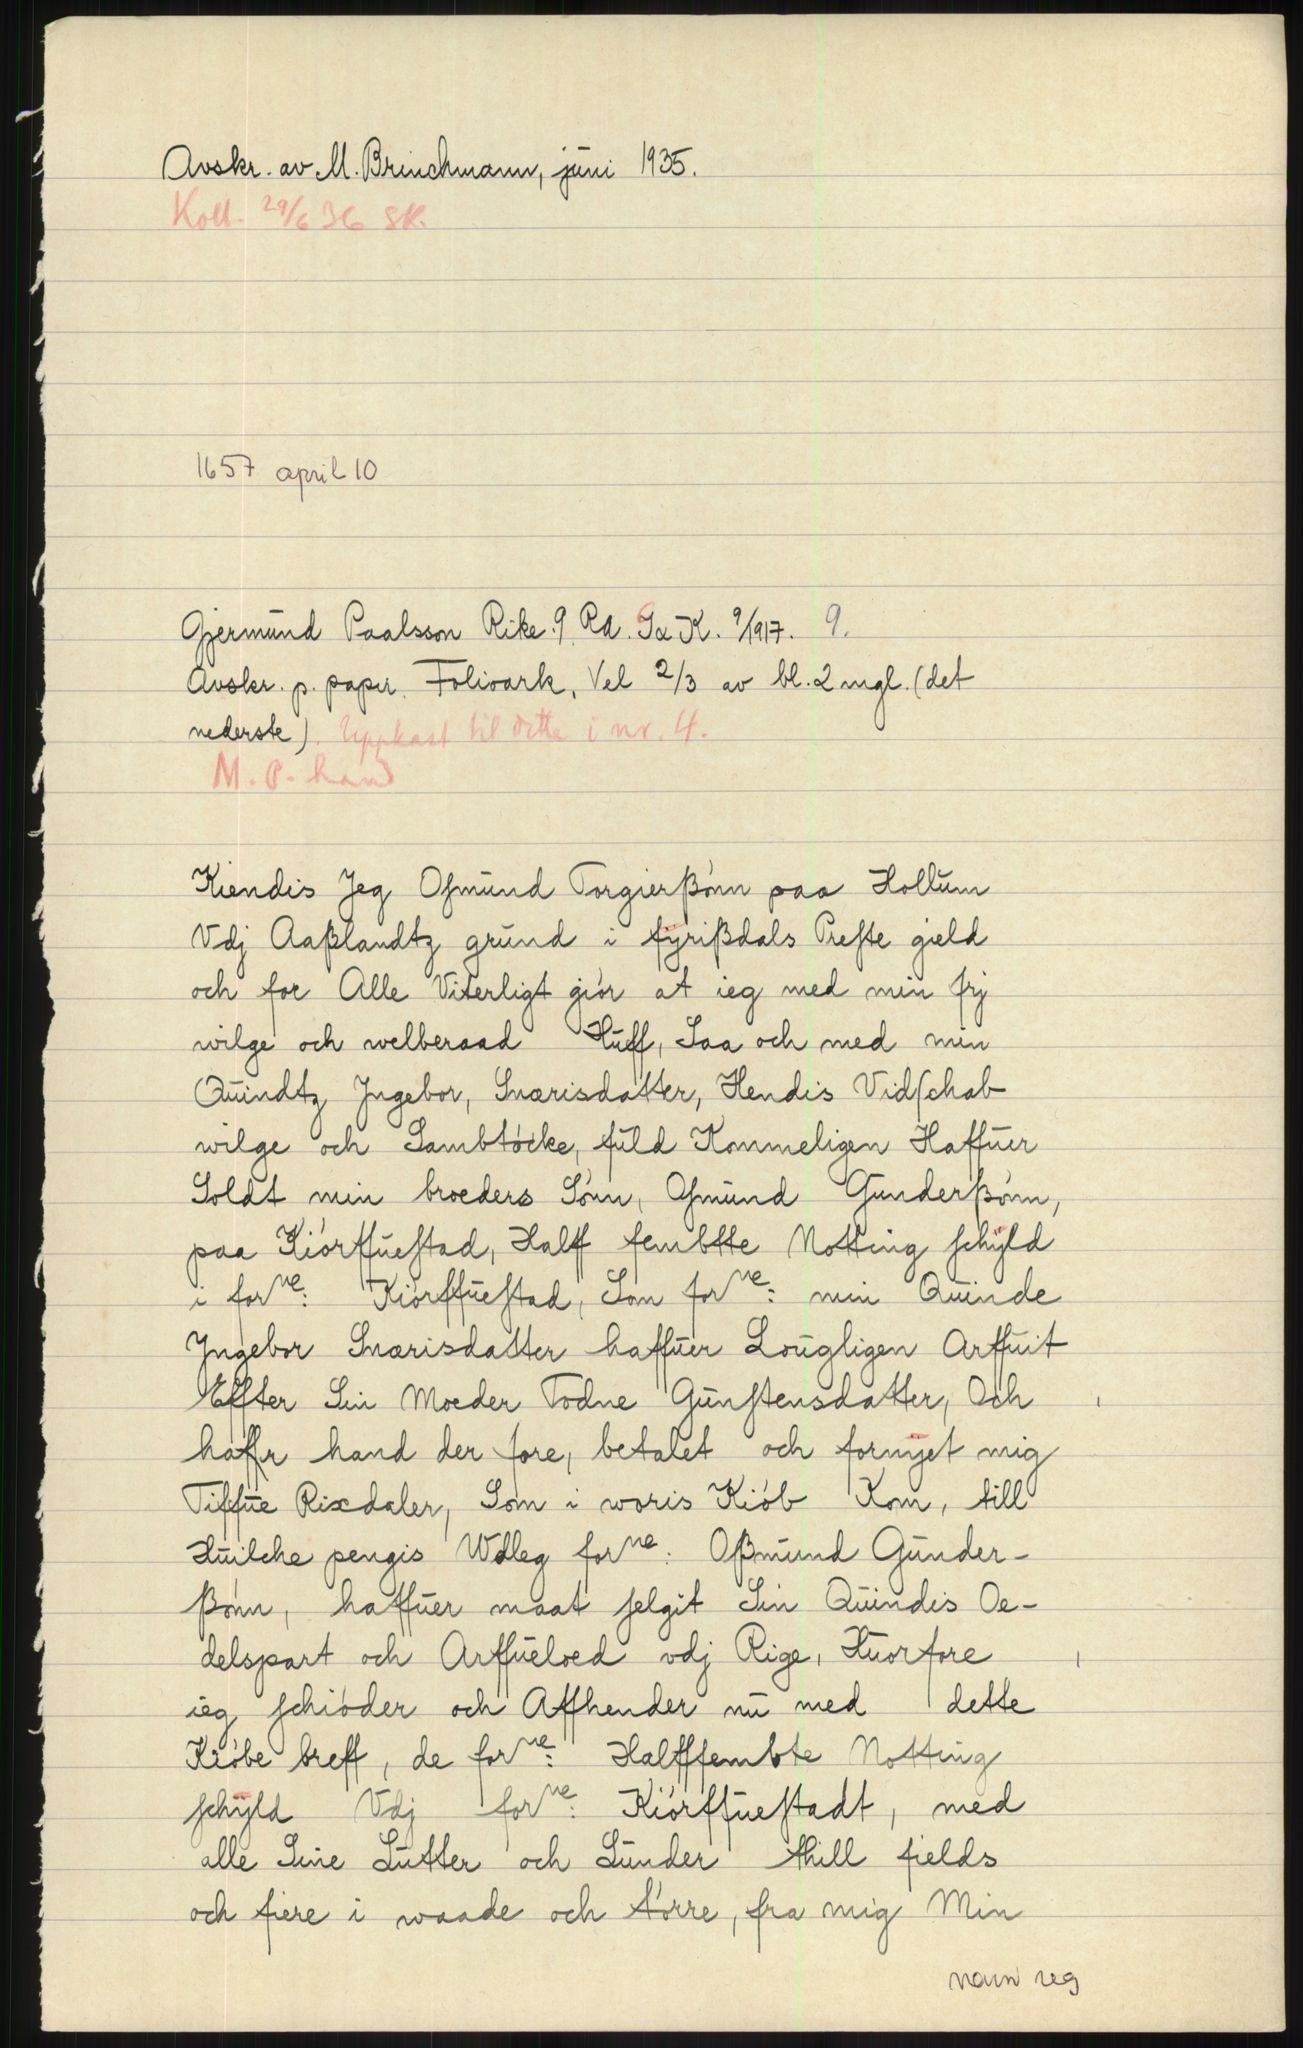 Avskr. av M. Brinchmann, juni 1935.
Koll. 29/6 36 SK.
1657 april 10
Gjermund Paalsson Rike. 9. Rd. Sa K. 9/1917. 9.
Avskr. p. papir. Folioark, Vel 2/3 av bl. 2 mgl. (det
nederste). Uppkast til dette i nr. 4.
M. P. hand
Kiendis Jeg Osmund Torgierßónn paa Hollum
Vdj Aaßlandtz grund i fÿrißdals Preste gield
och for Alle Viterligt giór at ieg med min frj
wilge och welberaad Huff, Saa och med min
Quindtz Jngebor, Snærisdatter, Hendis Vidschab
wilge och Sambtócke, fuld Kommeligen Haffuer
Soldt min broeders Sónn, Osmund Gunderßónn,
paa Kiórffuestad, Halff fembtte Notting schÿld
i forne: Kiórffuestad, Som forne: min Quinde
Jngebor Snærisdatter haffuer Lougligen Arffuit
Effter Sin Moeder Todne Gunstensdatter, Och
haffr hand der fore, betalet och fornÿet mig
Tiffue Rixdaler, Som i woris Kiób Kom, till
Huilche pengis Wdleg forne: Oßmund Gunder-
ßónn, haffuer maat selgit Sin Quindis Oe-
delspart och Arffueloed vdj Rige, Huorfore
ieg schióder och Affhender nu med dette
Kióbe breff, de forne: Halfffembte Notting
schÿld Vdj forne: Kiórffuestadt, med
alle Sine Lutter och Lunder thill fields
och fiere i waade och tórre, fra mig Min
navn reg